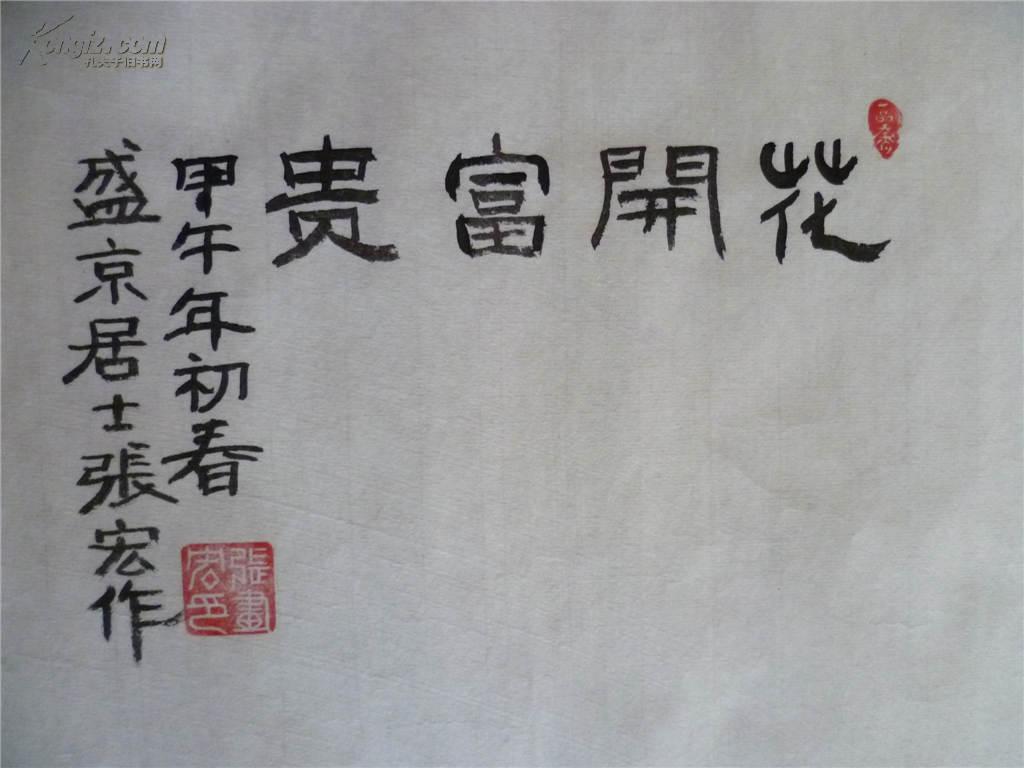 花開富貴
甲午年初春
盛京居士張宏作
張畫
宏印
Kongfz.com
孔夫子旧书网